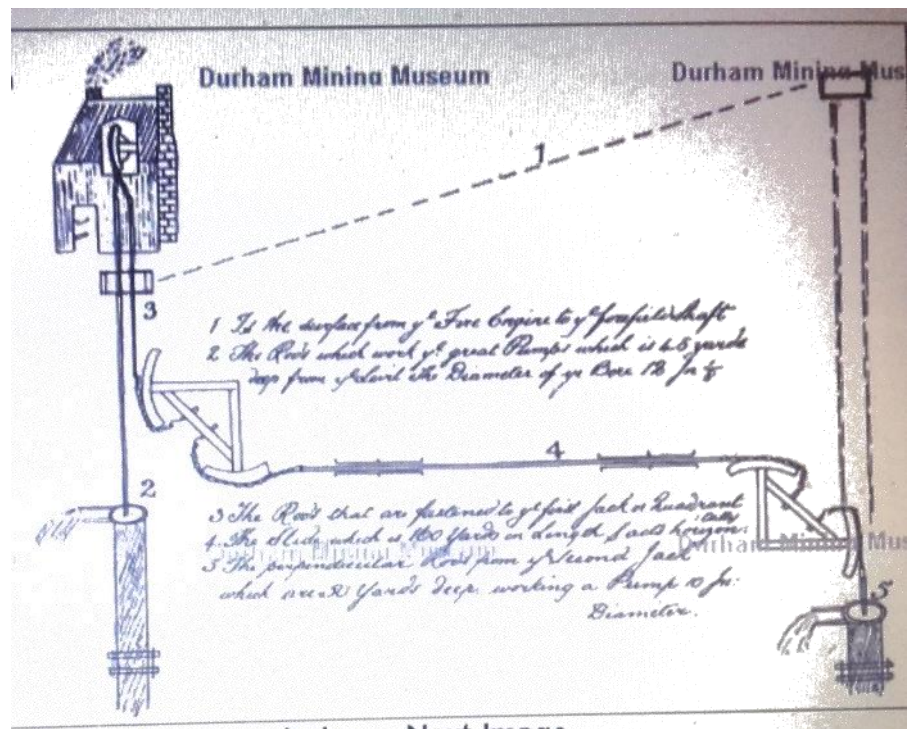 Durham Mining Museum
Durham Mining Mus
1
3
1 Is the surface from yᵉ Fire Engine to yᵉ shaft
2 The Rods which work yᵉ great Pumps which is 45 yards
deep from yᵉ Level the Diameter of ye Bore 12 In ½
4
2
3 The Rods that are fastened to yᵉ first Jack or Quadrant
4 The Slide which is 160 Yards in Length & acts horizon:
tally
Durham Mining Museum
Durham Mining Mus
5 The perpendicular Rods from yᵉ Second Jack
which are Yards deep working a Pump 10 In:
Diameter.
5
Next Image